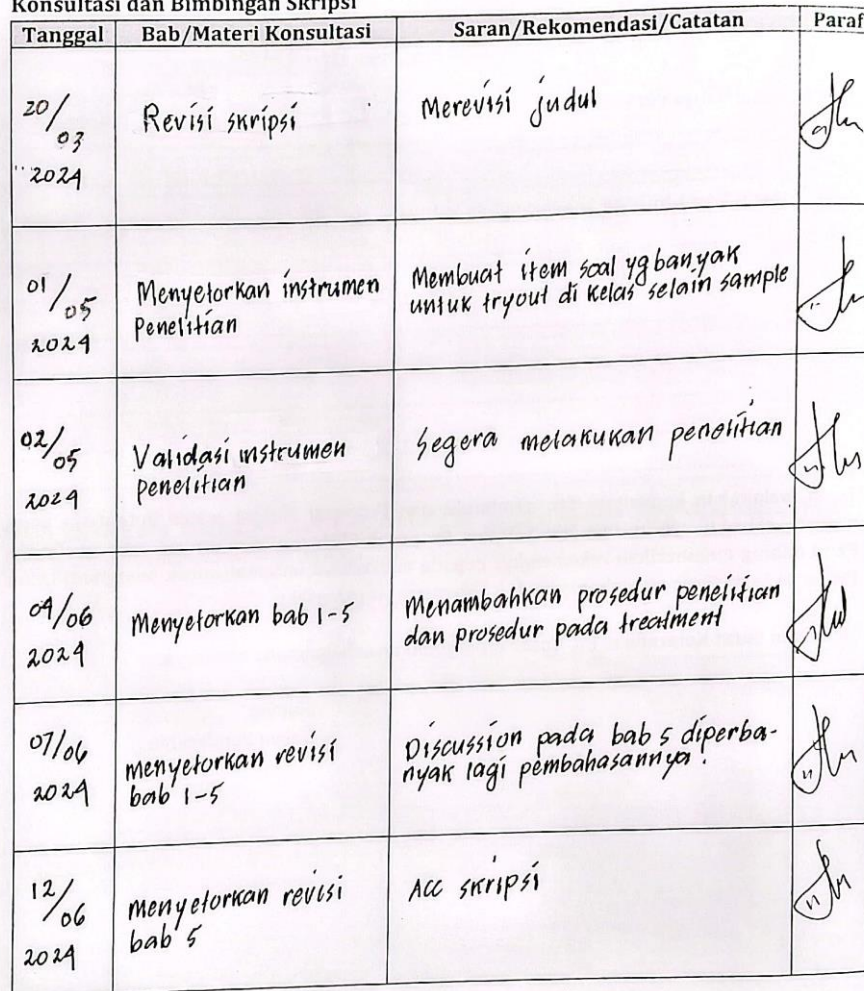 Konsultasi dan Bimbingan Skripsi
Tanggal Bab/Materi Konsultasi Saran/Rekomendasi/Catatan Paraf
20/03 2024
Revisi skripsi
Merevisi judul
01/05 2024
Menyetorkan instrumen
Penelitian
Membuat item soal yg banyak
untuk tryout di kelas selain sample
02/05 2024
Validasi instrumen
penelitian
Segera melakukan penelitian
04/06 2024
Menyetorkan bab 1-5
Menambahkan prosedur penelitian
dan prosedur pada treatment
07/06 2024
menyetorkan revisi
bab 1-5
Discussion pada bab 5 diperba-
nyak lagi pembahasannya.
12/06 2024
menyetorkan revisi
bab 5
Acc skripsi